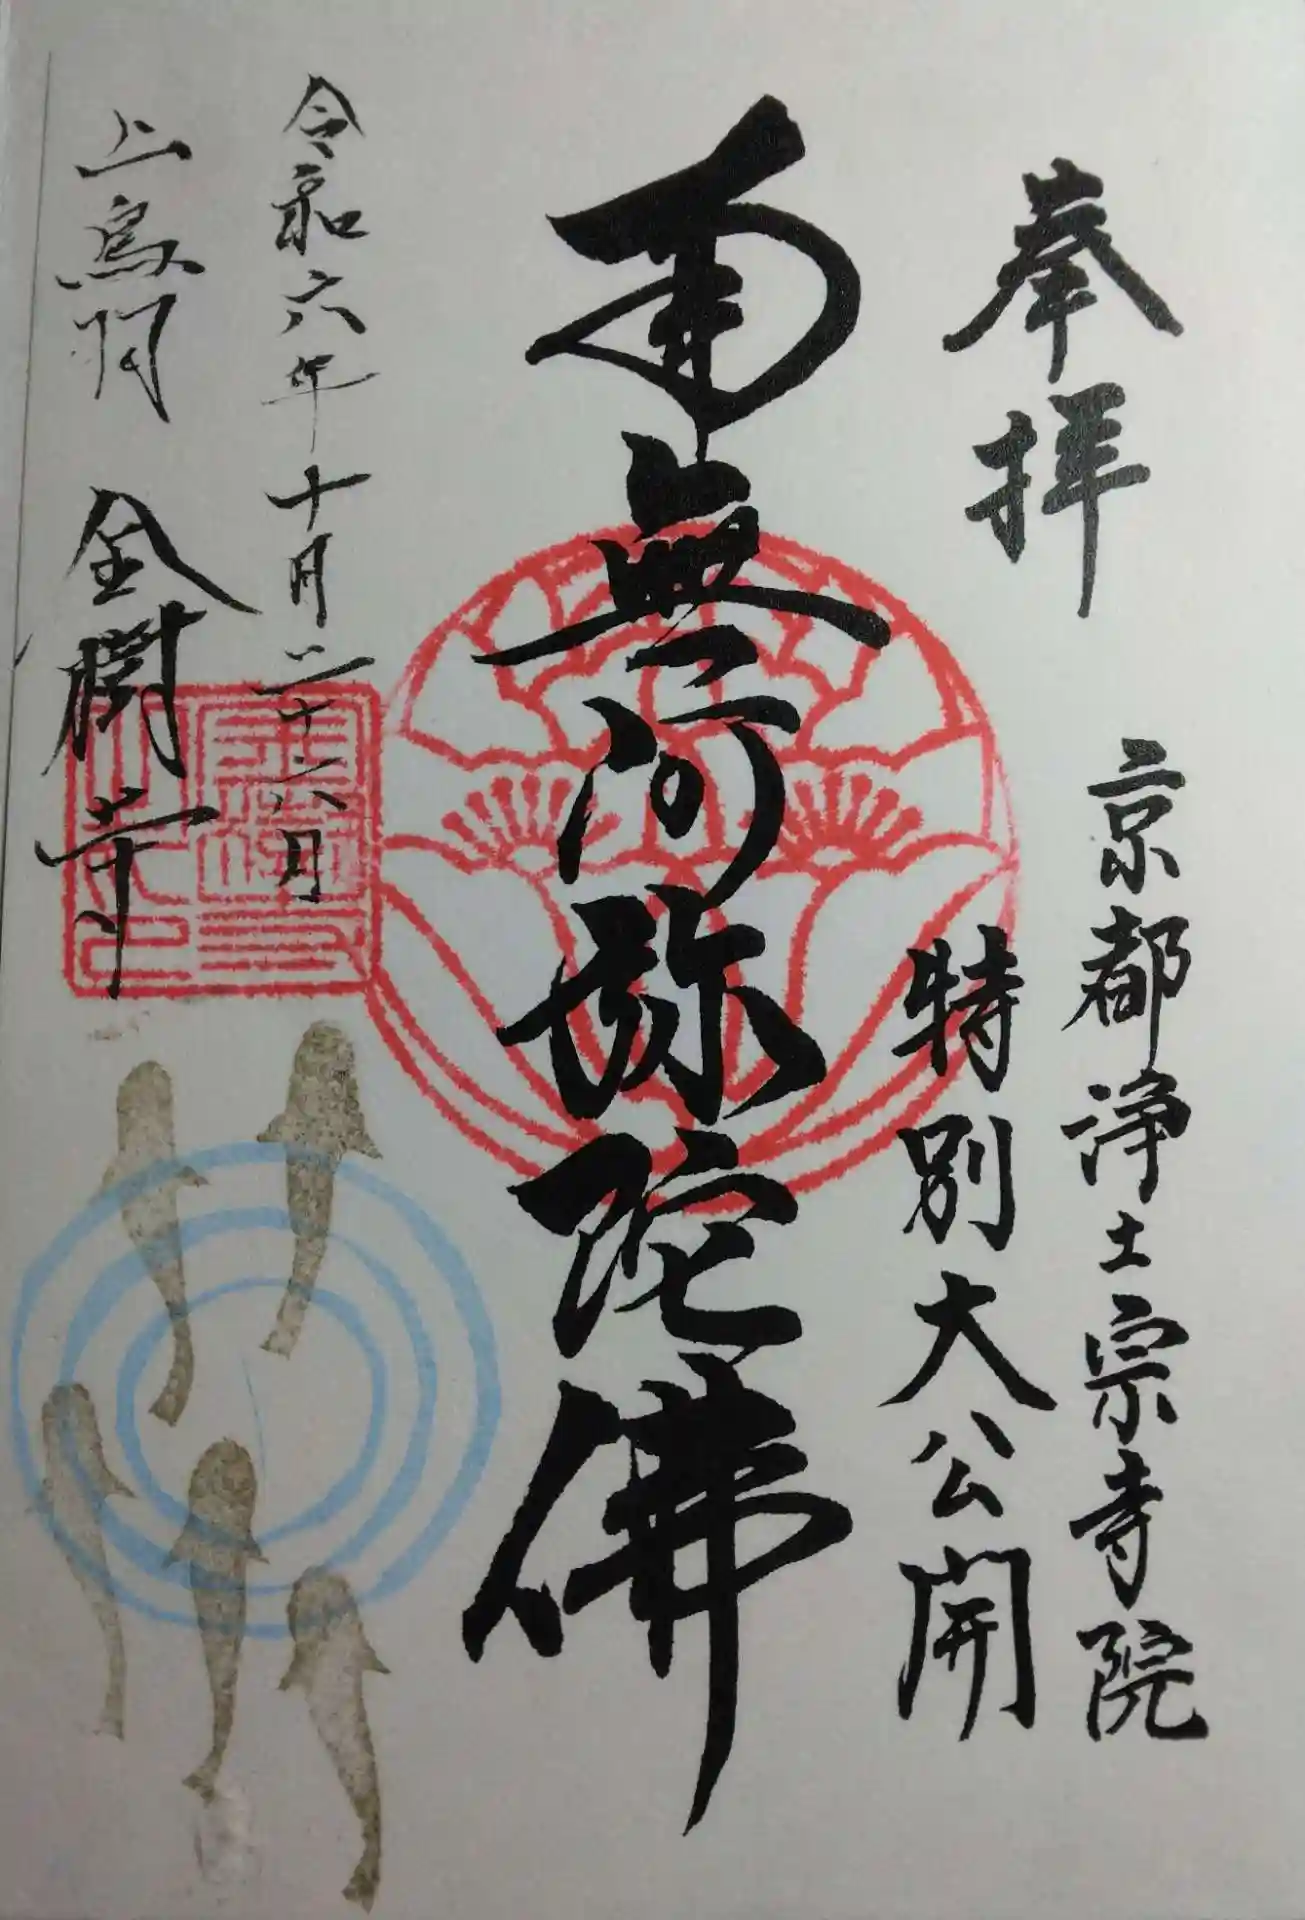 奉拝
京都浄土宗寺院
特別大公開
南無阿弥陀佛
令和六年十月二十八日
上鳥羽 金樹寺